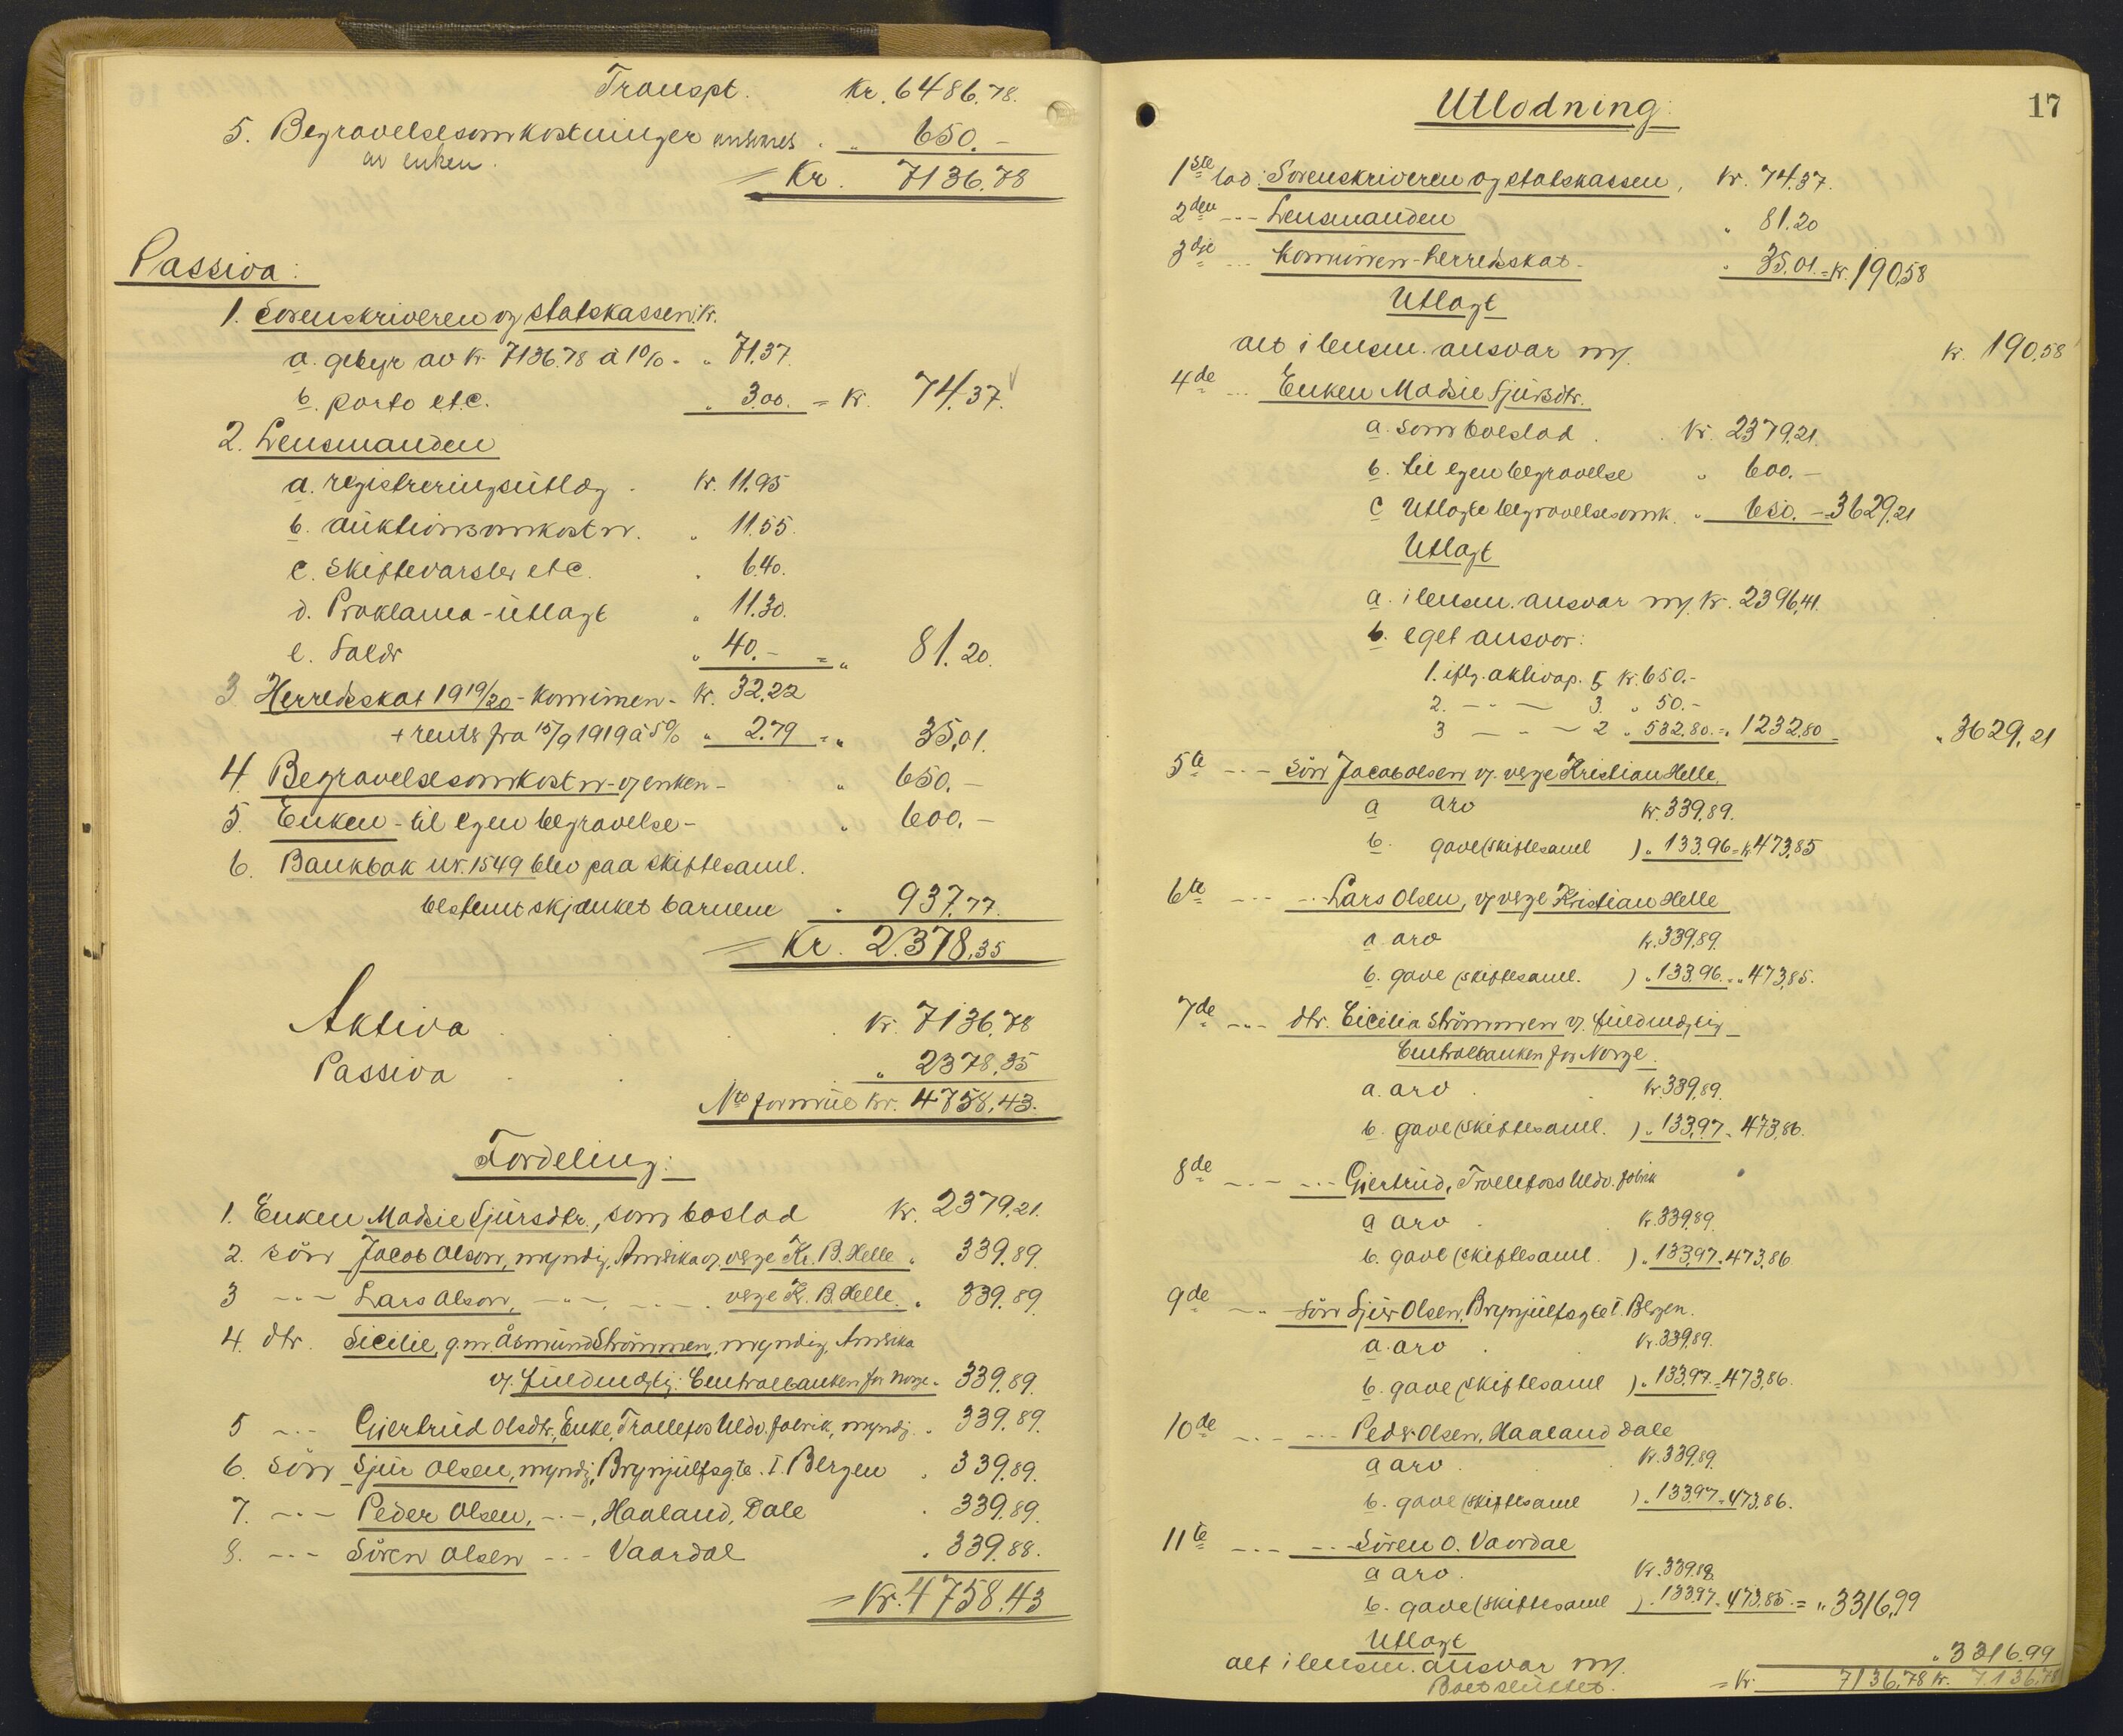 Transpt. Kr. 6486.78.
5. Begravelsesomkostninger anhvnes . „ 650.–
av enken.
= Kr. 7136.78
Passiva:
1. Sorenskriveren og statskassen. Kr.
a. gebyr av Kr. 7136.78 à 1% - „ 71.37.
b. porto etc. „ 3.00. = Kr. 74.37.
2. Lensmanden
a. registreringsutlæg . Kr. 11.95
b. auktionsomkostn. „ 11.55.
c. Skiftevarsler etc. „ 6.40.
d. Proklama-utlagt „ 11.30.
e. Salær „ 40.– = „ 81.20.
3 Herredsskat 1919/20 - kommunen - Kr. 32.22
+ rente fra 15/9 1919 à 5% „ 2.79 = „ 35,01.
4. Begravelsesomkostn - v/ enken - „ 650.–
5. Enken - til egen begravelse - „ 600.–
6. Bankbok nr. 1549 blev paa skiftesaml.
bestemt skjænket barnene „ 937.77.
= Kr. 2.378.35
Aktiva . . . Kr. 7136.78
Passiva . . „ 2378.35
Nto formue Kr. 4758,43.
Fordeling:
1. Enken Madsie Sjursdtr., som boslod Kr. 2379.21.
2. Sön Jacob Olson, myndig, Amerika v/ verge Kr. B. Helle „ 339.89.
3 -"- Lars Olson, -"-, -"- . verge K. B. Helle. „ 339.89.
4. dtr. Sicilie, g.m. Åsmund Strömmen, myndig, Amerika
v/ fuldmægtig: Centralbanken for Norge. 339.89.
5 -"- Gjertrud Olsdtr, Enke, Trollefos Uldv. fabrik, myndig „ 339.89.
6. Sön Sjur Olsen, myndig, Brynjulfsgte. I. Bergen „ 339.89.
7. -"- Peder Olsen, -"-, Haaland, Dale „ 339.89.
8. -"- Sören Olsen -"- Vaardal „ 339.88.
= Kr. 4758.43
17
Utlodning:
1ste lod: Sorenskriveren og statskassen, Kr. 74.37.
2den -"- Lensmanden „ 81.20
3dje -"- Kommunen - herredsskat - „ 35,01. = Kr. 190,58
Utlagt
alt i lensm. ansvar m/ Kr. 190,58
4de -"- Enken Madsie Sjursdtr.
a. som boslod . . Kr. 2379.21.
b. til egen begravelse „ 600.–
c Utlagte begravelsesomk. „ 650.– 3629,21
Utlagt
a. i lensm. ansvar m/ Kr. 2396,41.
b. eget ansvar:
1. iflg. aktiva p. 5 Kr. 650.–
2. -"- 3. „ 50.–
3 -"- 2 „ 532,80. = „ 1232,80 = „ 3629,21
5te -"- Sön Jacob Olsen v/ verge Kristian Helle.
a arv Kr. 339,89.
b. gave (skiftesaml ) „ 133.96 = Kr 473,85
6te -"- -"- Lars Olsen, v/ verge Kristian Helle
a. arv Kr. 339,89.
b. gave (skiftesaml. ) „ 133.96. = „ 473,85.
7de -"- dtr. Cicilia Strömmen v/ fuldmægtig
Centralbanken for Norge.
a. arv . Kr. 339,89.
b. gave (skiftesaml. ) „ 133,97 „ 473,86.
8de -"- -"- Gjertrud, Trollefoss Uldv. fabrik
a arv . Kr. 339.89.
b. gave (skiftesaml. ) „ 133,97 „ 473,86
9de -"- Sön Sjur Olsen, Brynjulfsgte I. Bergen.
a. arv . Kr. 339.89.
b. gave (skiftesaml ) „ 133.97. = 473,86.
10de -"- -"- Peder Olsen, Haaland Dale
a arv . Kr. 339.89.
b. gave (skiftesaml ) „ 133.97 = 473.86.
11te -"- -"- Sören O. Vaardal
a arv . Kr. 339.88
b. gave (skiftesaml ) „ 133.97 „ 473.85 = „ 3316,99
Utlagt
alt i lensm. ansvar m/. „ 3316.99
Boet sluttet. = Kr. 7136,78 Kr. 7.136.78